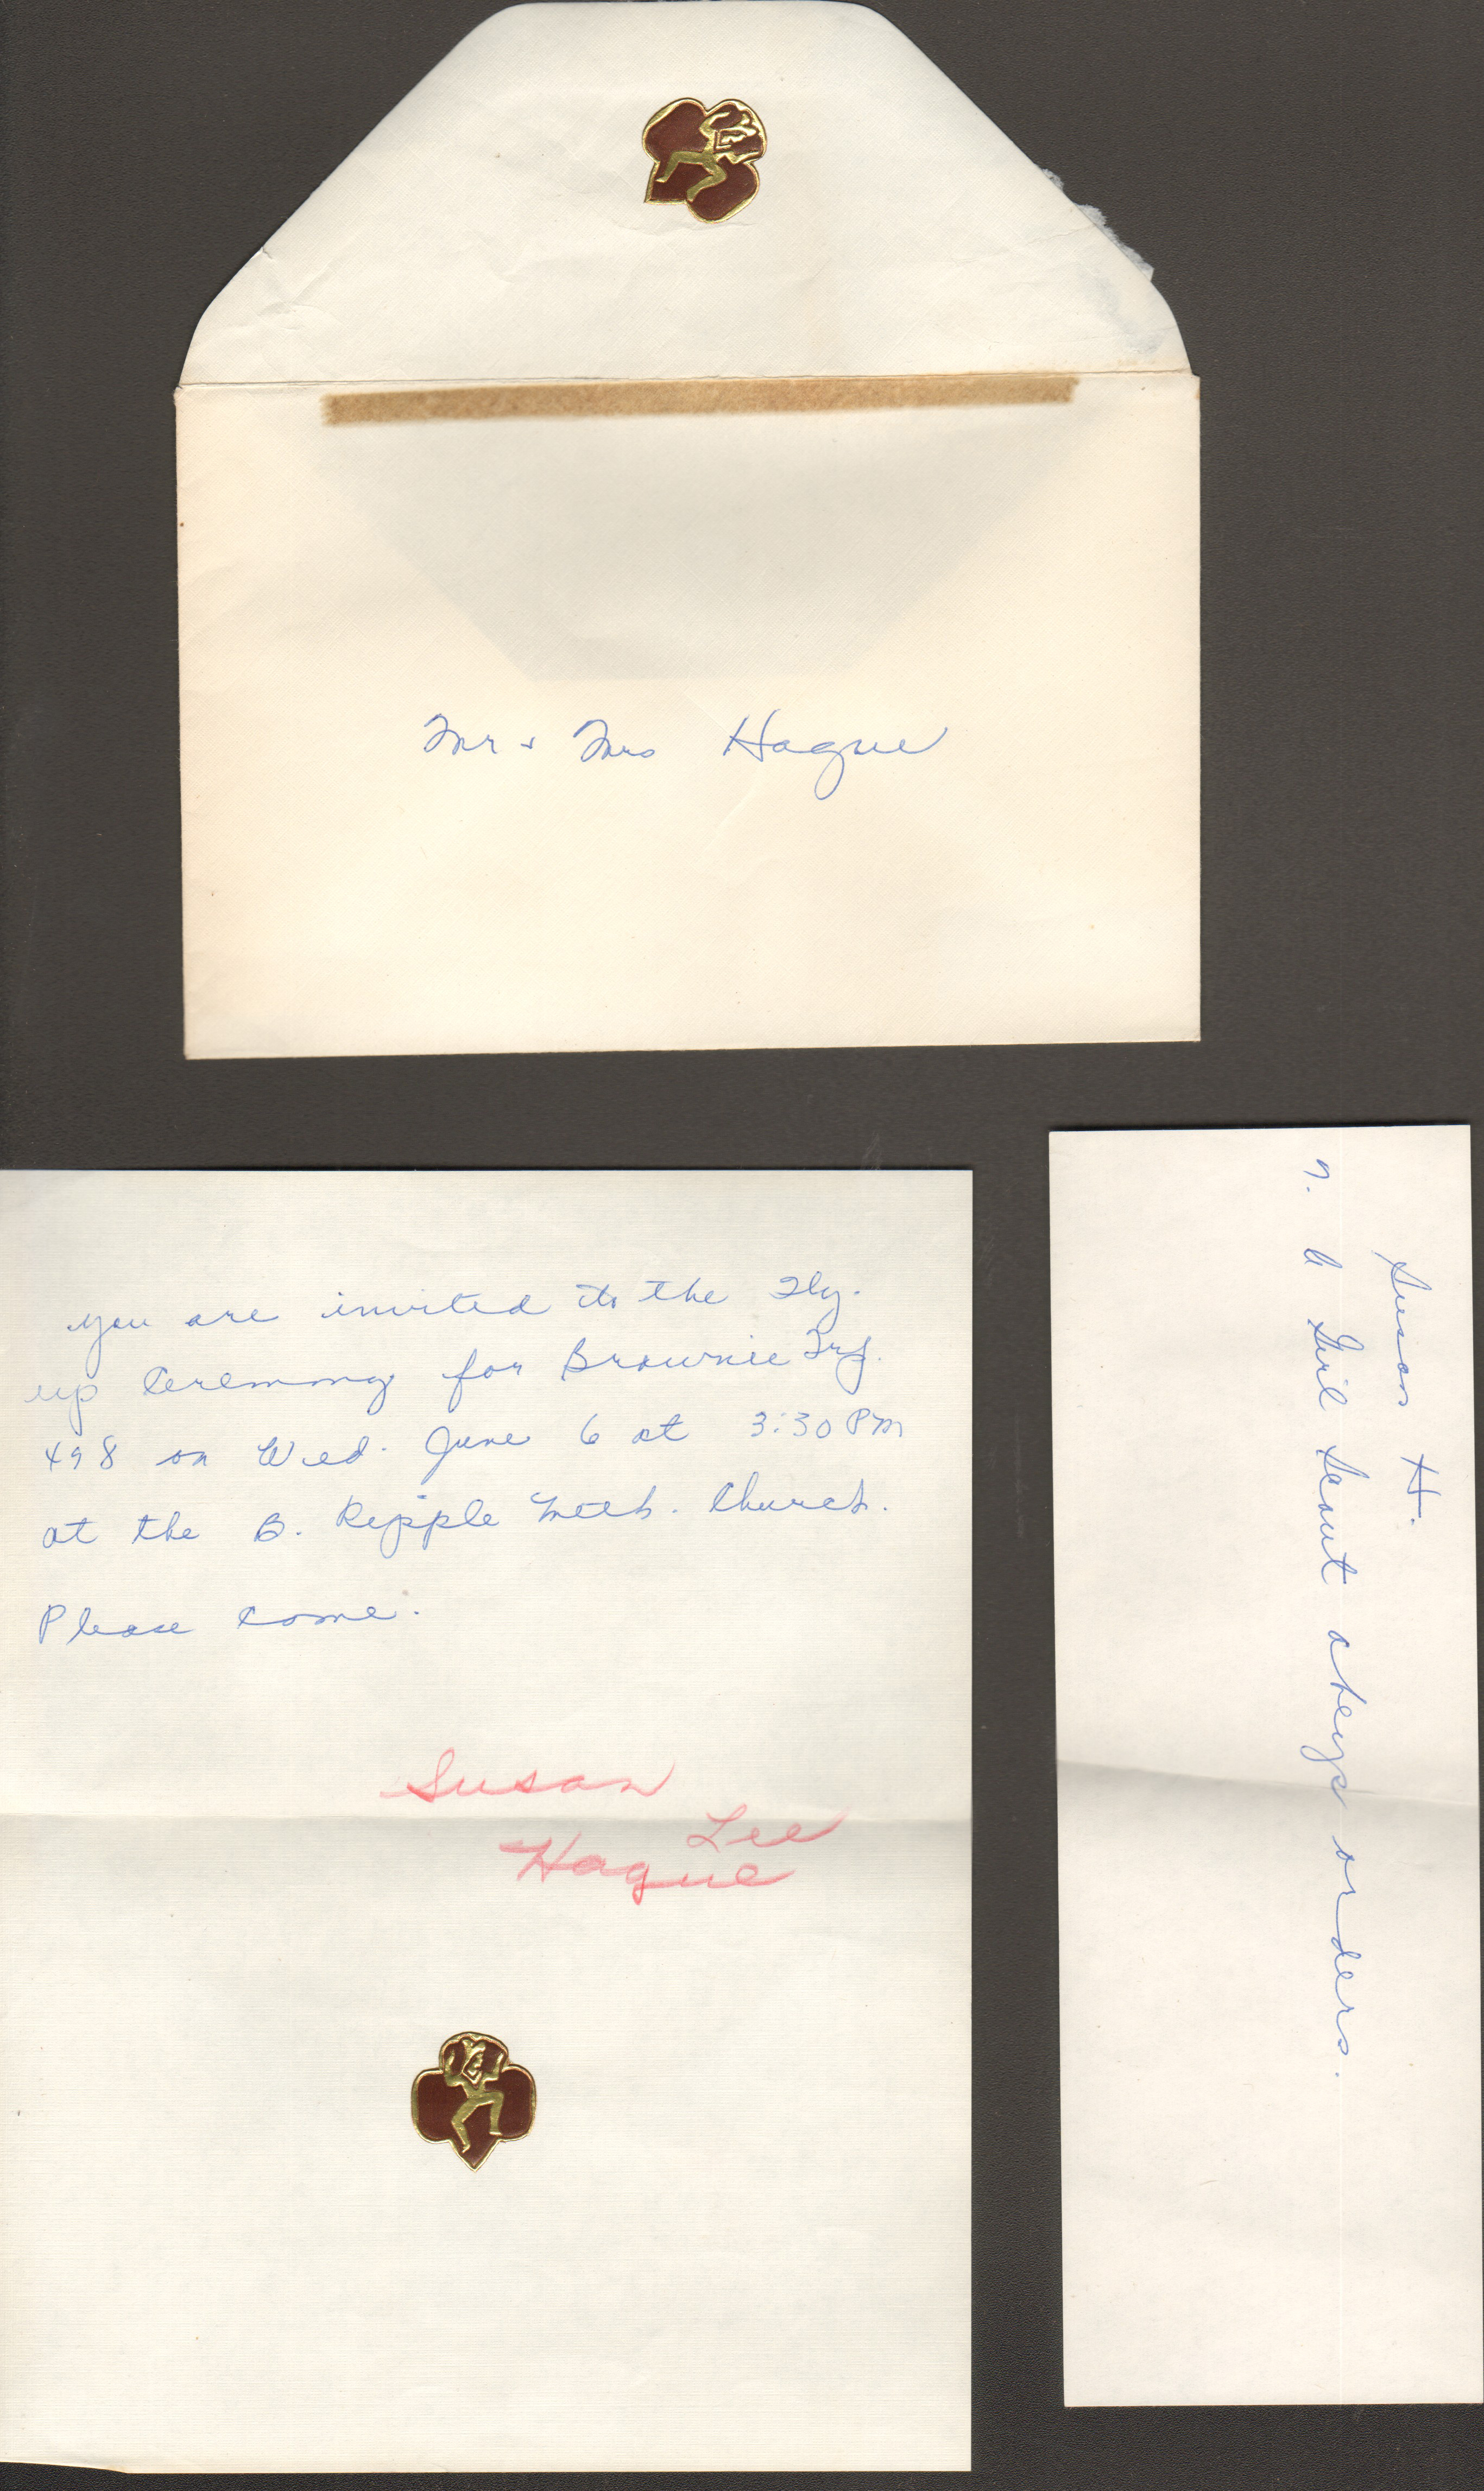 Mr & Mrs Hague
You are invited to the Fly-
up Ceremony for Brownie Trp.
498 on Wed. June 6 at 3:30 PM
at the B. Ripple Meth. Church.
Please come.
Susan
Lee
Hague
Susan H.
7. A Girl Scout obeys orders.